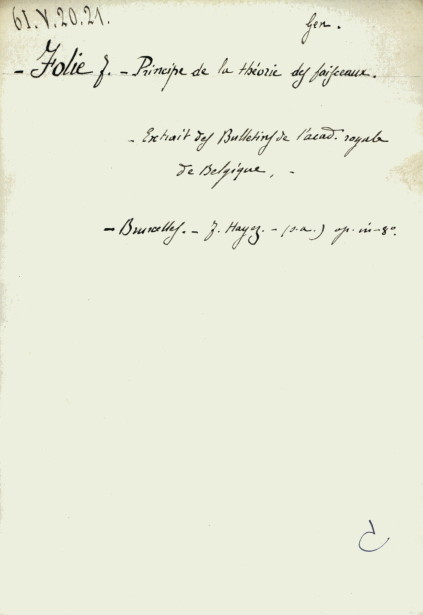 61.V.20.21.
Gen.
- Folie F. - Principe de la théorie des faisceaux.
- Extrait des Bulletins de l'acad. royale
de Belgique, -
- Bruxelles. - F. Hayez. - (s.a.) op. in-8º.